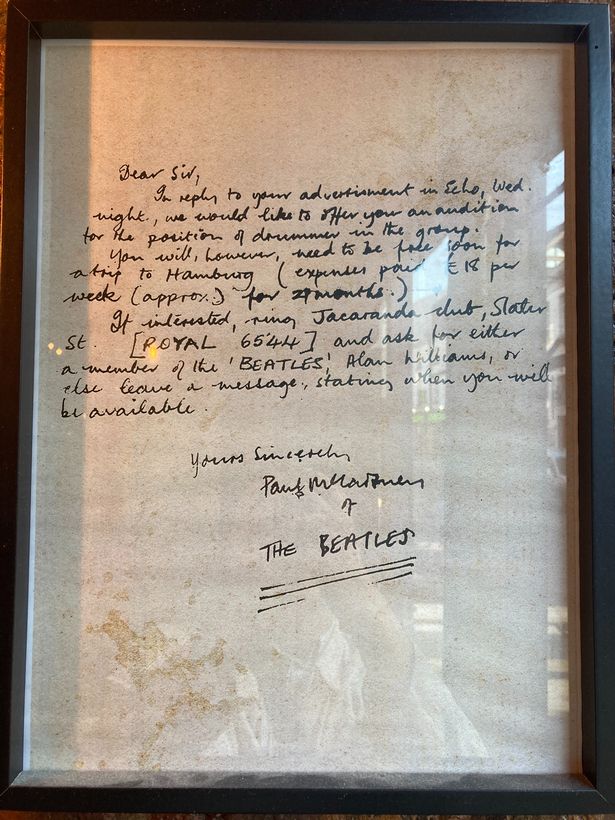 Dear Sir,
In reply to your advertisment in Echo, Wed.
night., we would like to offer you an audition
for the position of drummer in the group.
You will, however, need to be free soon for
a trip to Hamburg (expenses paid £18 per
week (approx.) for months.)
If interested, ring Jacaranda club, Slater
St. [ROYAL 6544] and ask for either
a member of the 'BEATLES', Alan Williams, or
else leave a message, stating when you will
be available.
Yours Sincerely
Paul McCartney
of
THE BEATLES